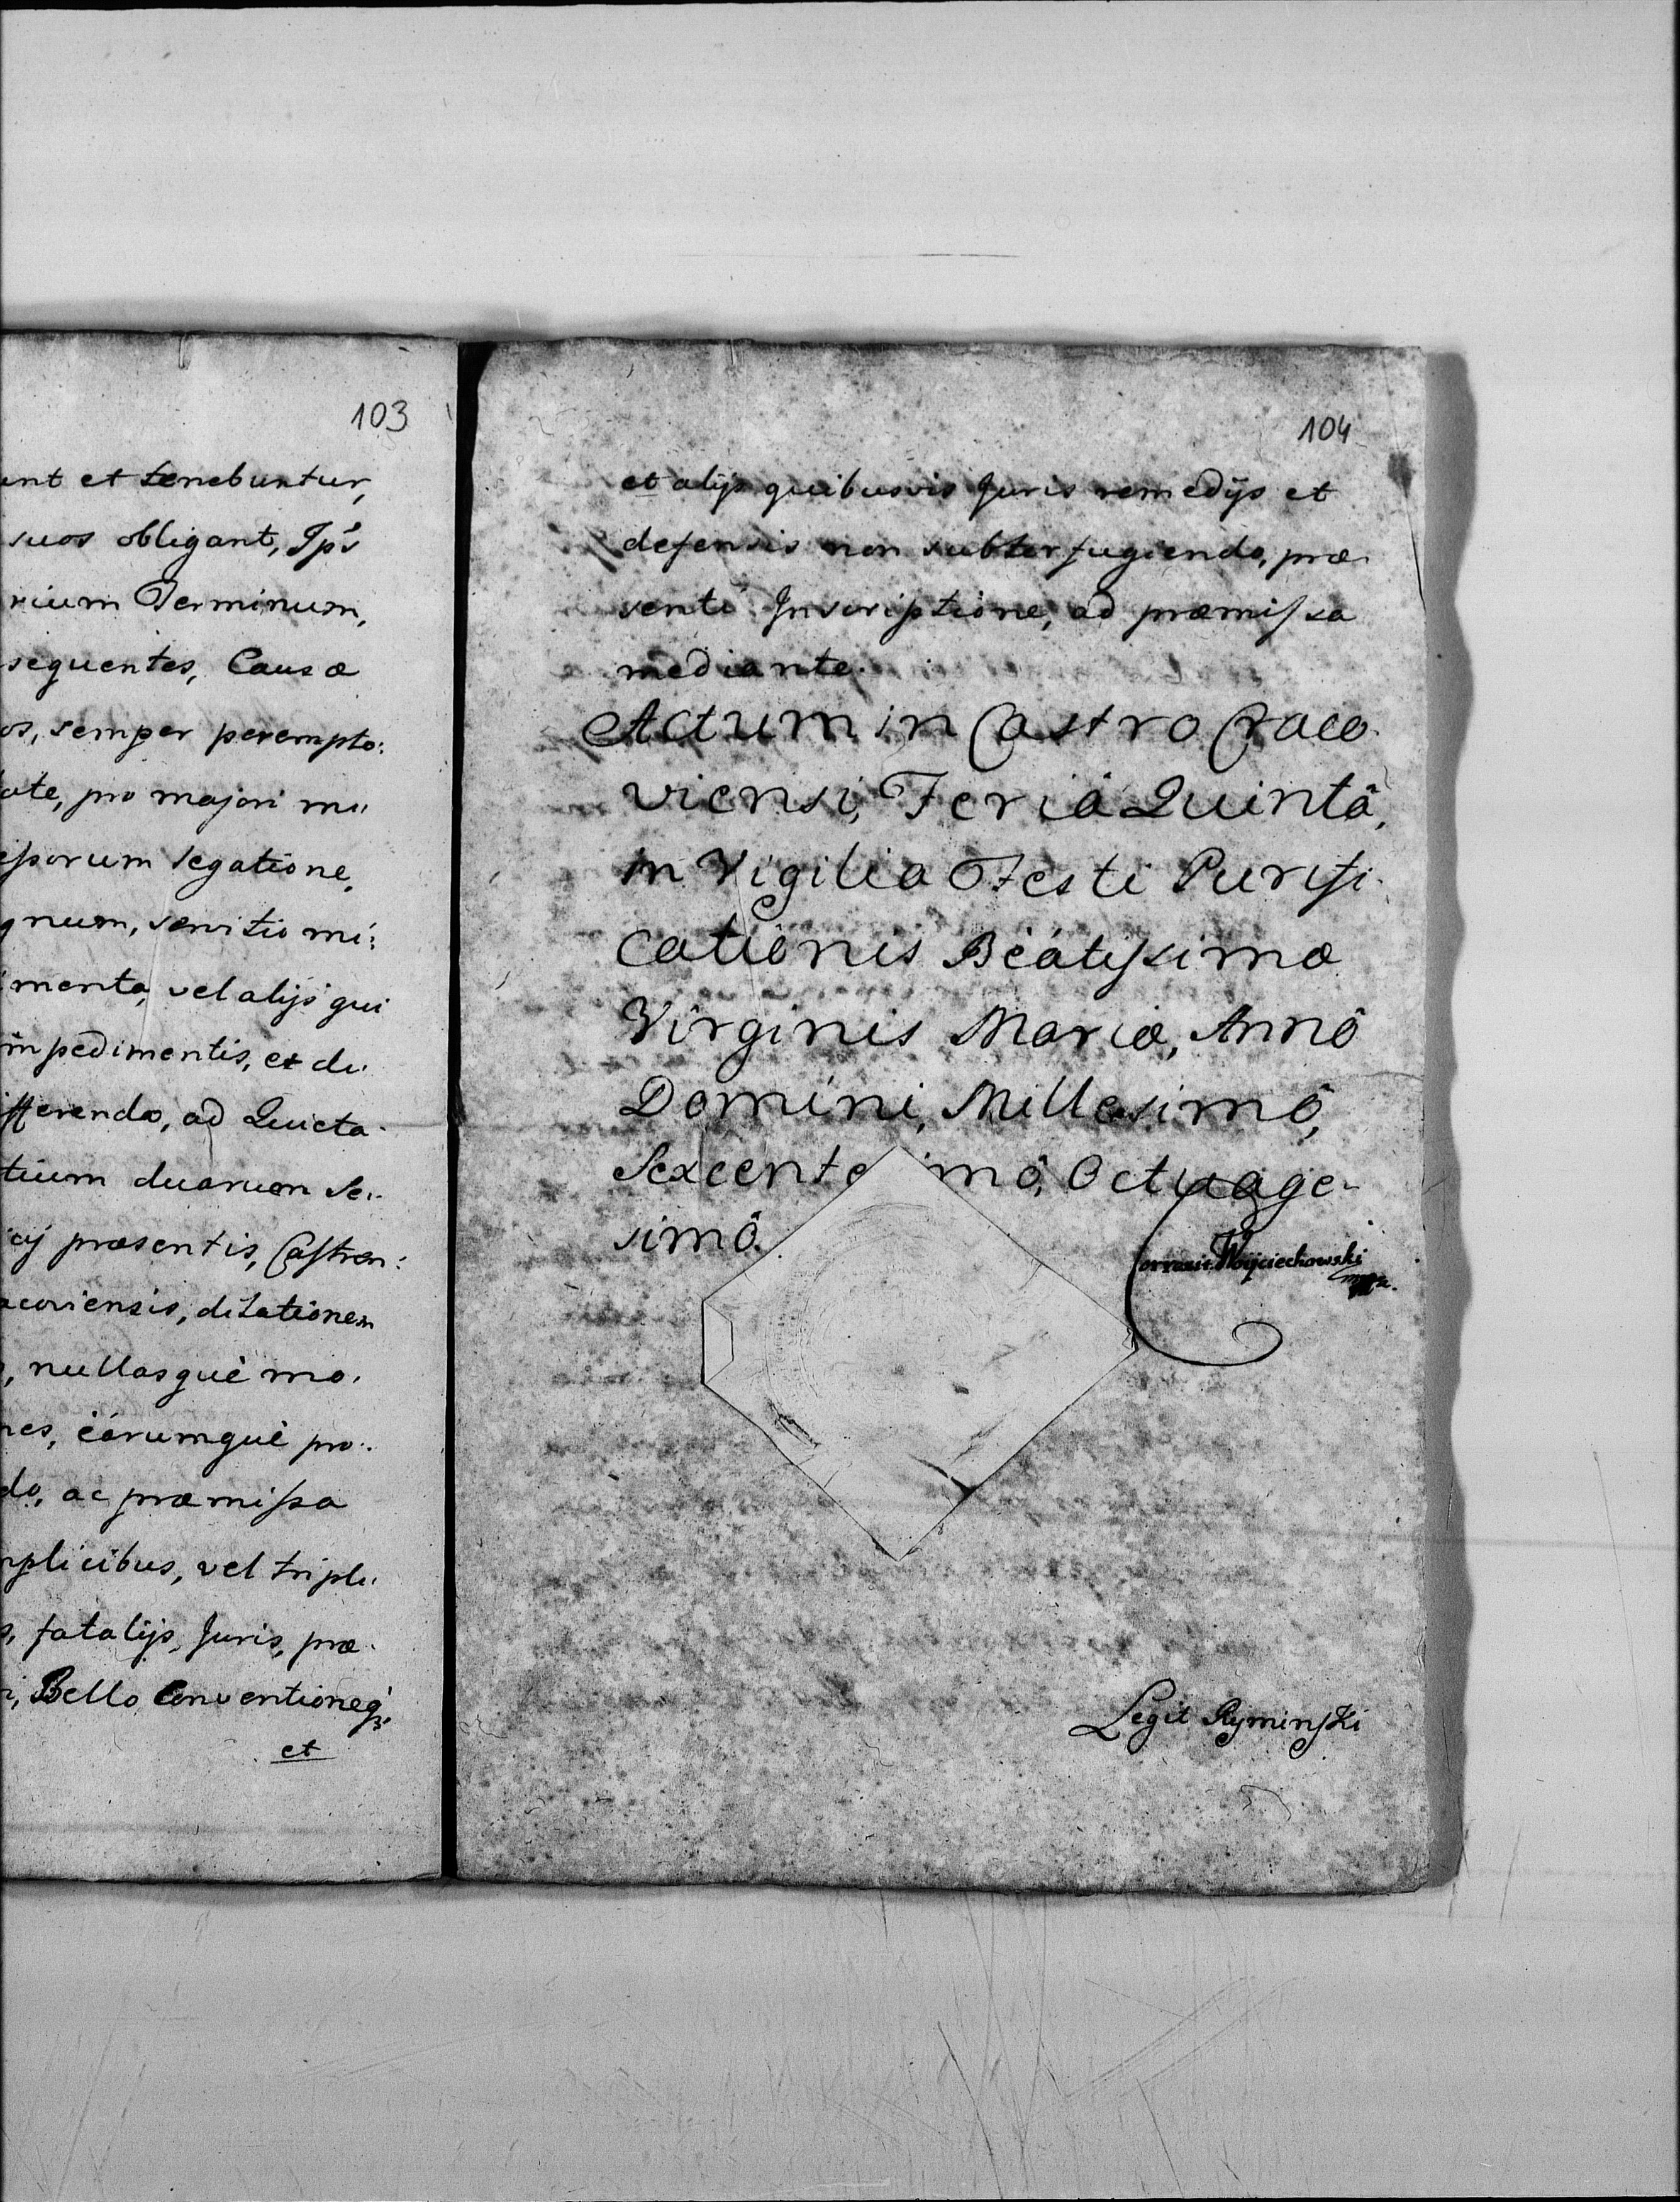 103
ent et tenebuntur,
suos obligant, Ips̃
rium Terminum,
sequentes, Causæ
os, semper perempto:
ate, pro majori mu
essorum legatione,
gnum, servitio mi:
menta, vel alijs qui
impedimentis, et di
fferendo, ad Quieta
tium duarum Se
cij præsentis, Castren:
acoviensis, dilationem
, nullasquè mo
nes, eárumquè pro
do, ac præmissa
mplicibus, vel tripli
s, fatalijs, Juris, præ
i, Bello Conventioneq̃
et
104
et alijs quibusvis Juris remedijs et
defensis non subterfugiendo, præ
senti Inscriptione, ad præmissa
mediante.
Actum in Castro Craco
viensi, Feriâ Quintâ,
in Vigilia Festi Purifi
cationis Beátissimæ
Virginis Mariæ, Annô
Domini, Millesimô,
Sexcente imô, Octuage
simô.
Correxit Woyciechowski
mpa.
Legit RyminsKi